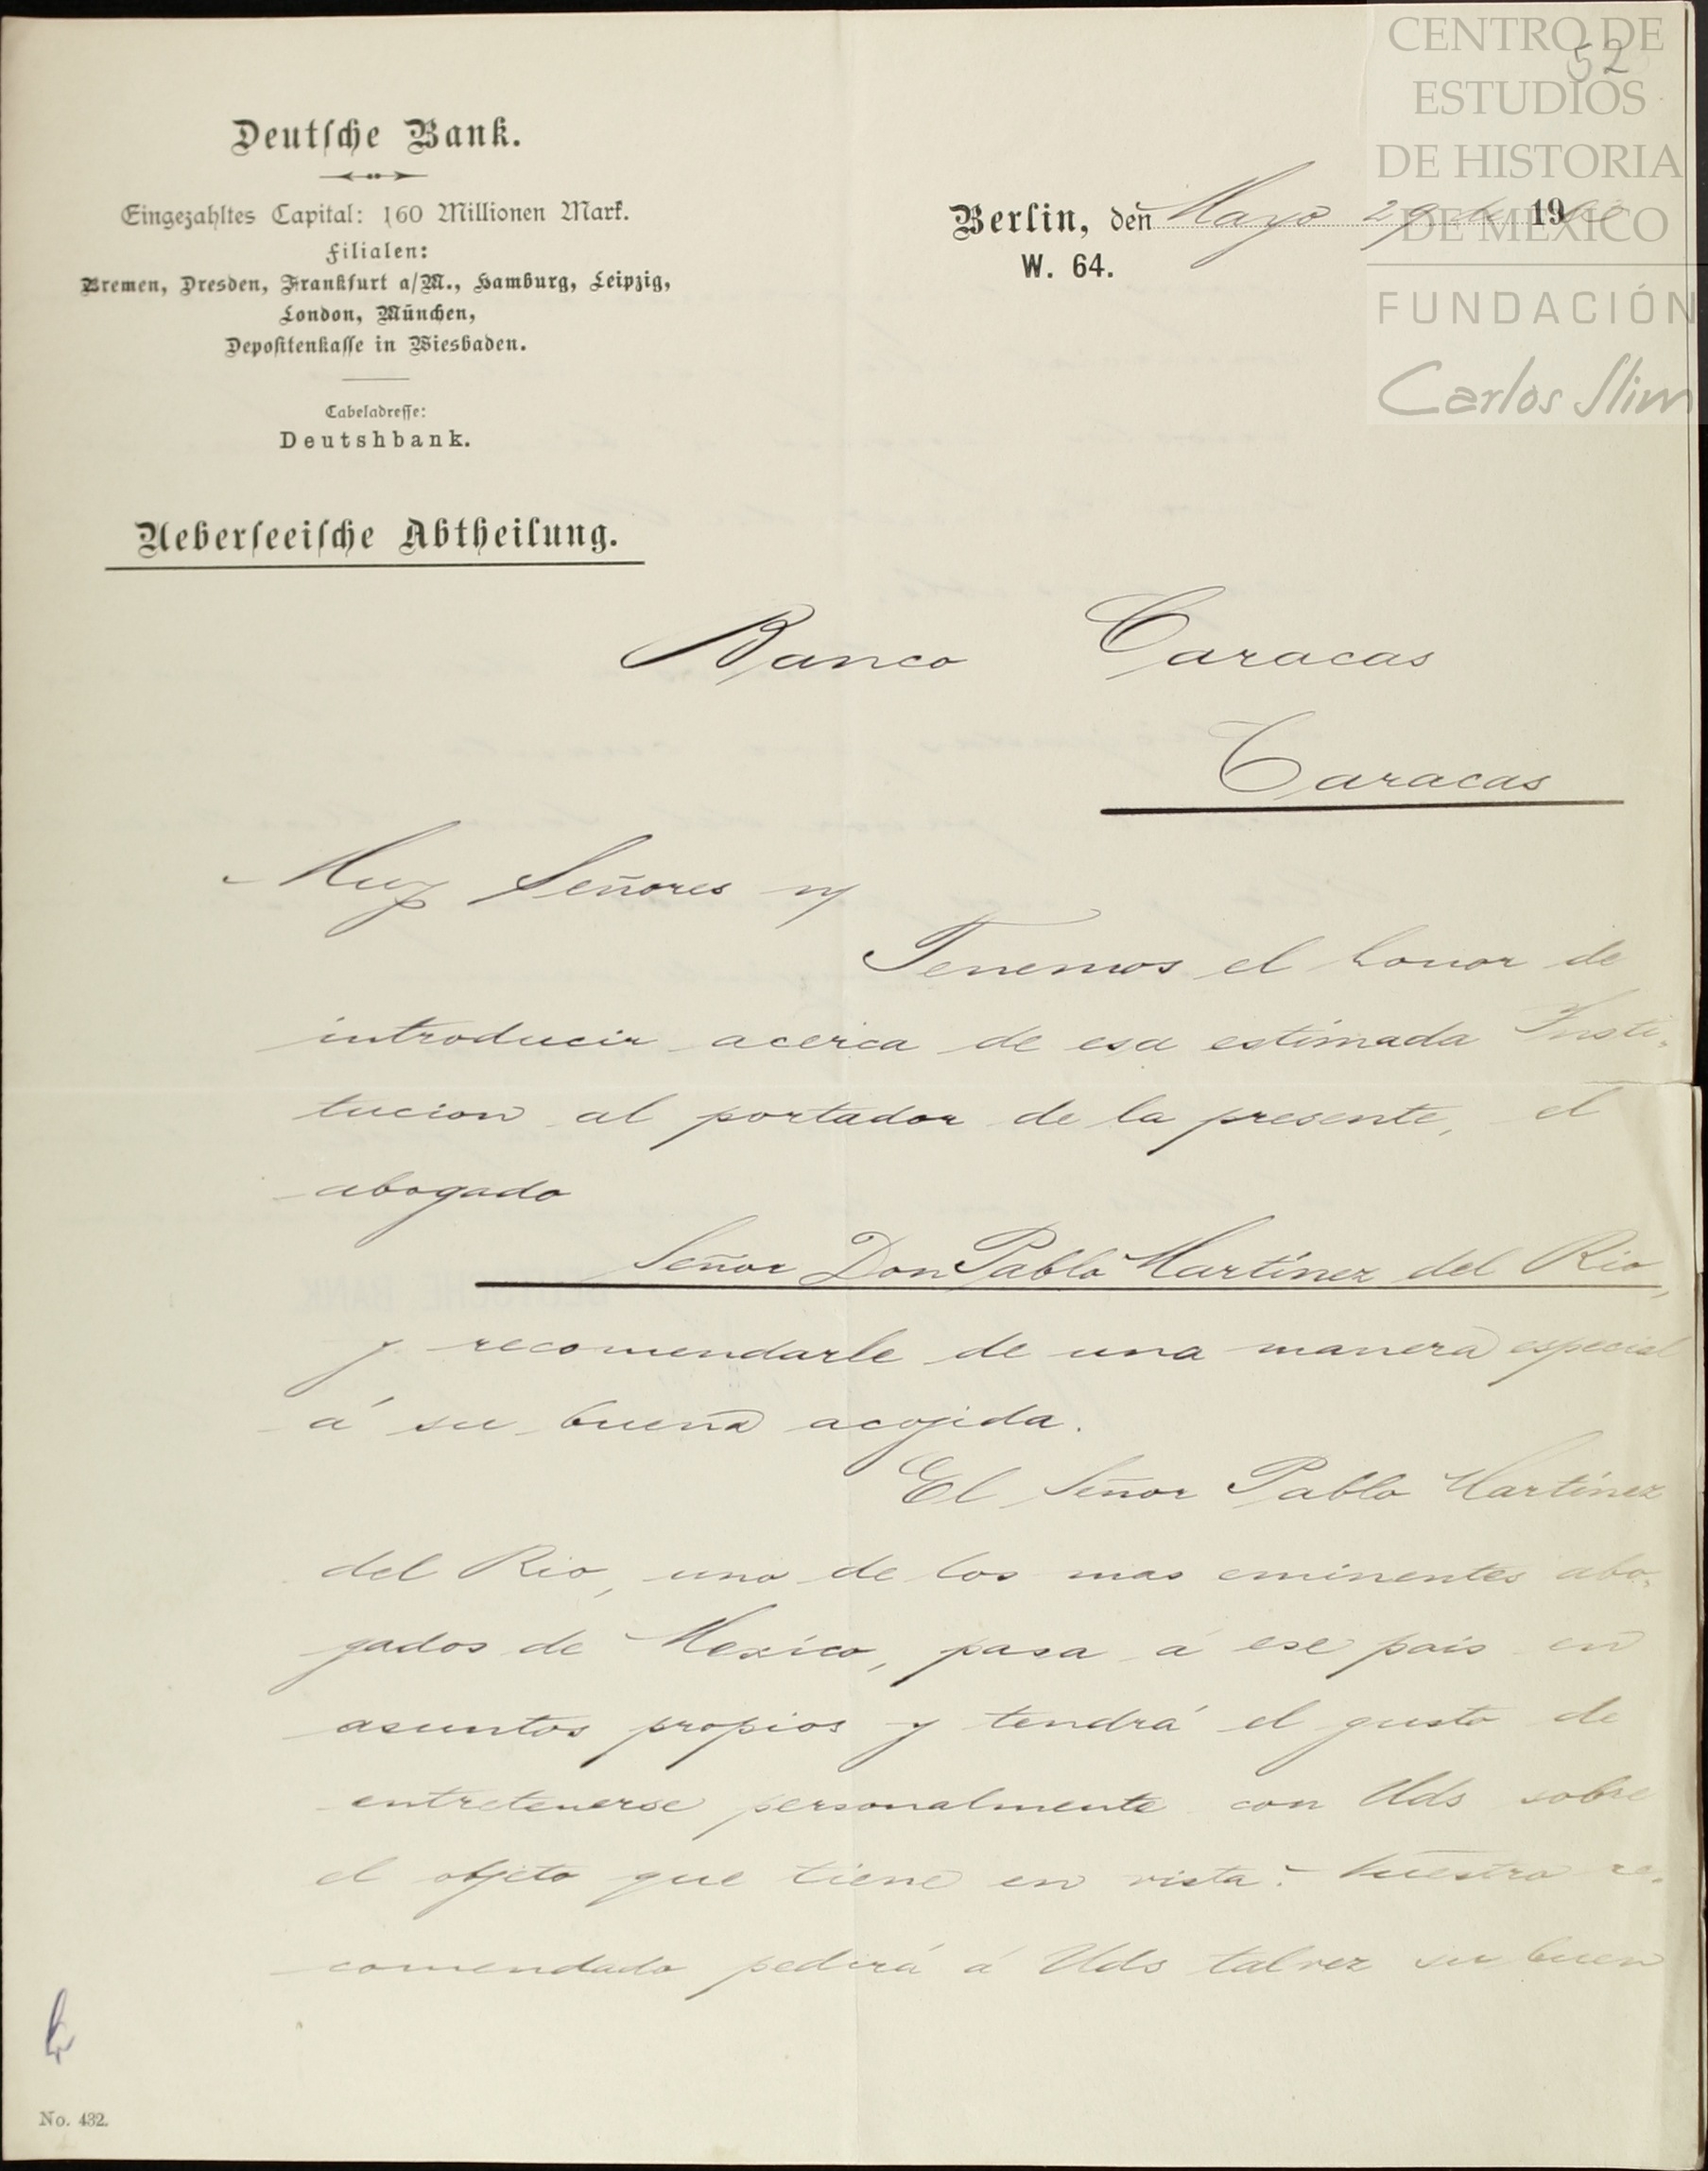 CENTRO DE
52
ESTUDIOS
DE HISTORIA
DE MÉXICO
FUNDACIÓN
Carlos Slim
Deutsche Bank.
Eingezahltes Capital: 160 Millionen Mark.
Filialen:
Bremen, Dresden, Frankfurt a/M., Hamburg, Leipzig,
London, München,
Depositenkasse in Wiesbaden.
Cabeladresse:
Deutshbank.
Ueberseeische Abtheilung.
Berlin, den Mayo 29 de 19
W. 64.
Banco Caracas
Caracas
Muy Señores
Tenemos el honor de
introducir acerca de esa estimada Insti-
tucion al portador de la presente, el
abogado
Señor Don Pablo Martínez del Rio,
y recomendarle de una manera especial
á su buena acojida.
El Señor Pablo Martínez
del Rio, uno de los mas eminentes abo-
gados de Mexico, pasa á ese pais en
asuntos propios y tendrá el gusto de
entretenerse personalmente con Uds sobre
el objeto que tiene en vista.- Nuestro re-
comendado pedirá á Uds talvez su buen
No. 432.